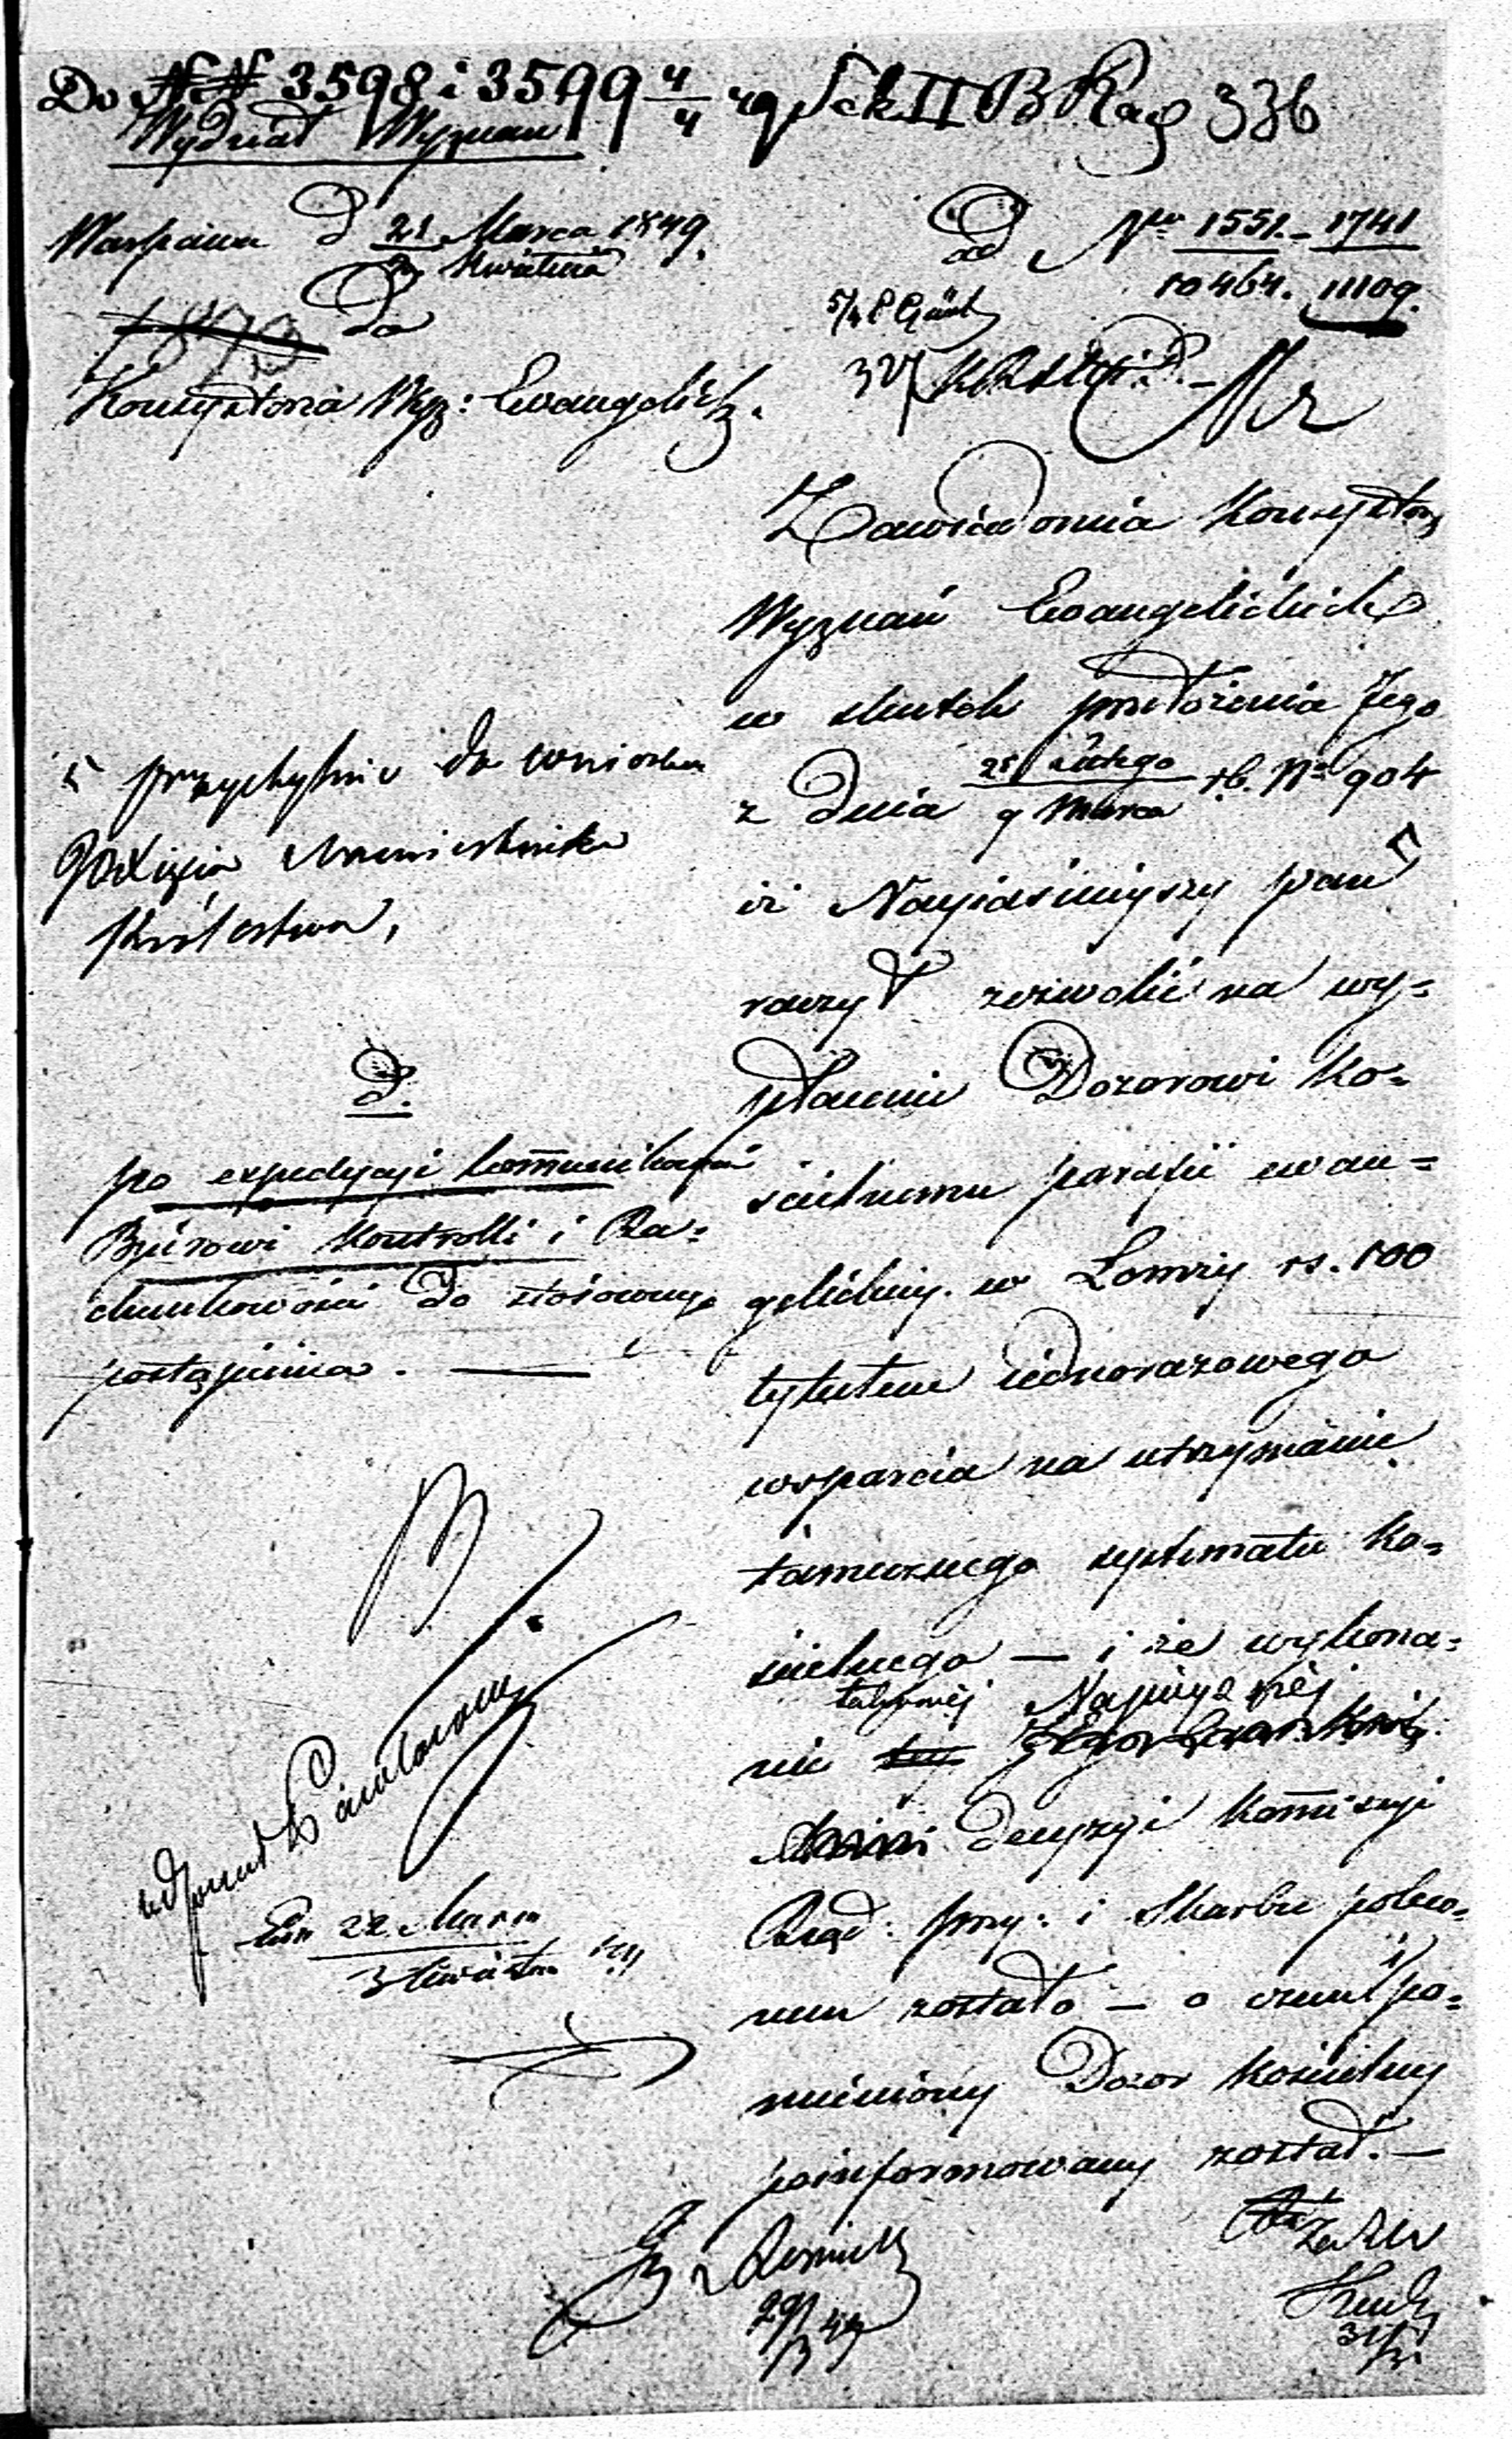 Do NN 3598 i 3599 4/4 49 Sek II B Rag 336
Wydział Wyznań
Warszawa d 21 Marca 1849.
2 Kwietnia
Do
Konsystorza Wyz: Ewangelick.
ad Nra 1551. - 1741
10464. 11109.
Zawiadomia Konsystorz
Wyznań Ewangelickich
w skutek przełożenia Jego
z dnia 25 Lutego / 9 Marca rb. No 904
iż Najjaśniejszy Pan
raczył zezwolić na wy=
płacenie Dozorowi Ko=
ścielnemu parafii ewan=
gelickiej w Łomży rs. 100
tytułem jednorazowego
wsparcia na utrzymanie
tamecznego systematu Ko=
ścielnego — i że wykona=
takowej Najwyższéj
nie
decyzyi Kommissyi
Rząd: Przy: i Skarbu polec=
nem zostało — o czem wspo=
mniony Dozor Kościelny
poinformowany został. —
przychylnie do wniosku
Xięcia Namiestnika
Królestwa,
d.
po expedycyi kommunikacyi
Biurowi Kontrolli i Ra=
chunkowości do stósownego
postąpienia. —
dnia 22 Marca
3 Kwietnia
29/3 49
31/3